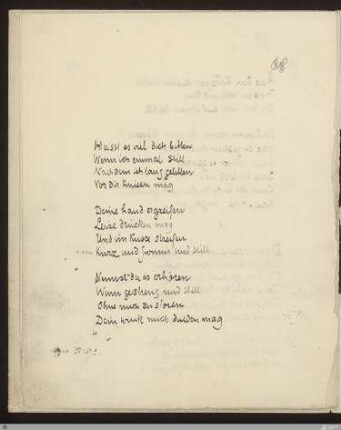 Heisst es viel dich bitten
Wenn ich einmal still
Nachdem ich lang gelitten
Vor dir knieen mag

Deine hand ergreifen
Leise drücken mag
Und im kusse streifen
Kurz und fromm und still

Nennst du es erhören
Wenn gestreng und still
Ohne mich zu stören
Dein wink mich dulden mag